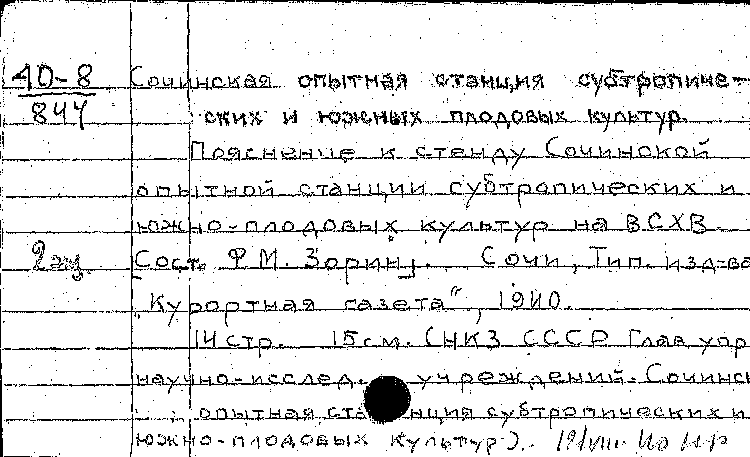 40-8 Сочинская опытная станция субтропиче-
844 ских и южных плодовых культур.
Пояснение к стенду Сочинской
опытной станции субтропических и
южно-плодовых культур на ВСХВ.
2 экз. Сост. Ф.М. Зорин]. Сочи, Тип. изд-ва
"Курортная газета", 1940.
14 стр. 15 см. (НКЗ СССР Глав упр
научно-исслед. учреждений. Сочинск
опытная станция субтропических и
южно-плодовых культур).